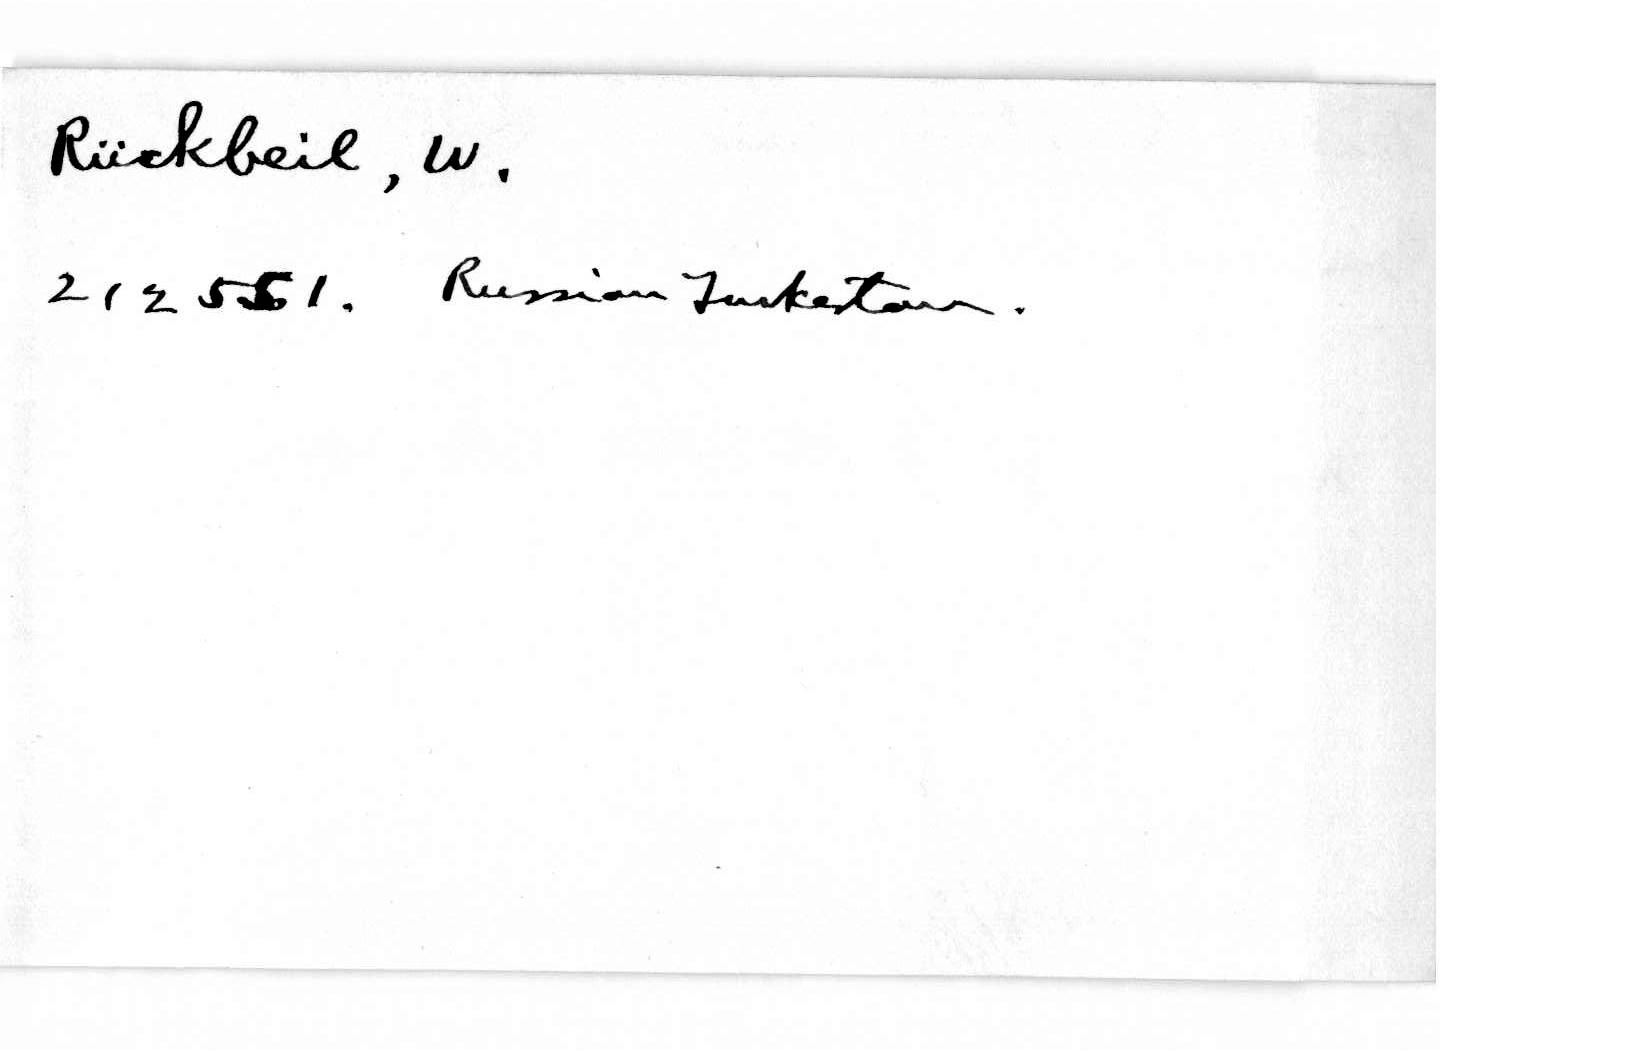 Rückbeil, W.
212551. Russian Turkestan.